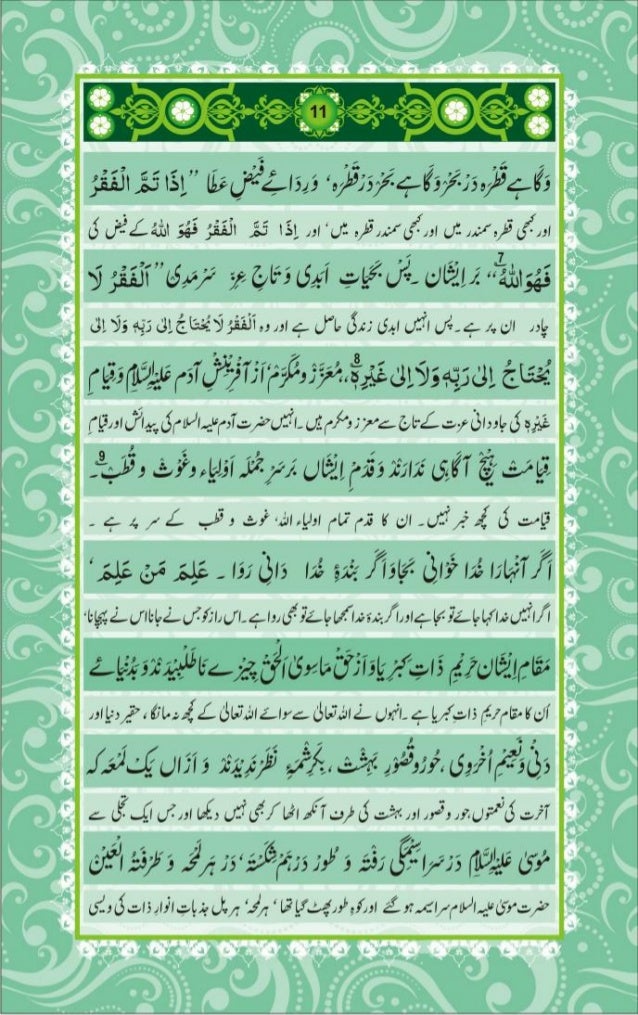 11
وَگاہے قَطْرَہ دَرْ بَحْرْ وَگاہے بَحْرْ دَرْ قَطْرَہ، وَرِدَائے فَیْضِ عَطَا ’’اِذَا تَمَّ الْفَقْرُ
اور کبھی قطرہ سمندر میں اور کبھی سمندر قطرہ میں، اور اِذَا تَمَّ الْفَقْرُ فَهُوَ اللهُ کے فیض کی
فَهُوَ اللهُ7‘‘، بَر اِیْشَان ۔ پَسْ بَحَیَاتِ اَبَدِی وَ تَاجِ عِزِّ سَرْمَدِی ’’اَلْفَقْرُ لَا
چادر ان پر ہے۔ پس انہیں ابدی زندگی حاصل ہے اور وہ اَلْفَقْرُ لَا یُحْتَاجُ اِلٰی رَبِّهٖ وَلَا اِلٰی
یُحْتَاجُ اِلٰی رَبِّهٖ وَلَا اِلٰی غَیْرِهٖ8‘‘، مُعَزَّزْ وَ مُکَرَّمْ، اَزْ آفَرِیْنِشِ آدَم عَلَیْہِ السَّلَام وَ قِیَامِ
غَیْرِهٖ کی جاودانی عزت کے تاج سے معزز و مکرم ہیں۔ انہیں حضرت آدم علیہ السلام کی پیدائش اور قیامِ
قِیَامَتْ ہِیْچ آگاہِی نَدَارَنْدْ وَ قَدَمِ اِیْشَاں بَرْ سَرِ جُمْلَہ اَوْلِیَاء وَ غَوْث وَ قُطْبْ9۔
قیامت کی کچھ خبر نہیں۔ ان کا قدم تمام اولیاء اللہ، غوث و قطب کے سر پر ہے ۔
اَگَر آنْہَارَا خُدَا خَوَانِی بَجَا وَ اَگَر بَنْدَۂِ خُدَا دَانِی رَوَا ۔ عَلِمَ مَنْ عَلِمَ ،
اگر انہیں خدا کہا جائے تو بجا ہے اور اگر بندۂ خدا سمجھا جائے تو بھی روا ہے۔ اس راز کو جس نے جانا اس نے پہچانا،
مَقَامِ اِیْشَان حَرِیْمِ ذَاتِ کِبْرِیَا وَ اَزْ حَقْ مَاسِوَی الْحَقْ چِیْزے نَاطَلْبِیْدَنْدْ وَ بَدُنْیَائے
اُن کا مقام حریمِ ذاتِ کبریا ہے۔ انہوں نے اللہ تعالیٰ سے سوائے اللہ تعالیٰ کے کچھ نہ مانگا، حقیر دنیا اور
دَنِی وَ نَعِیْمِ اُخْرَوِی، حُورْ وَ قُصُورِ بِہِشْت ، بَکِرِشْمَۂِ نَظَرْ نَدِیْدَنْدْ وَ اَزْ آں یَک لَمْعَہ کِہ
آخرت کی نعمتوں حور و قصور اور بہشت کی طرف آنکھ اٹھا کر بھی نہیں دیکھا اور جس ایک تجلی سے
مُوسٰی عَلَیْہِ السَّلَام دَرْ سَرَاسِیْمَگِی رَفْتَہ وَ طُورْ دَرْہَمْ شِکَسْتَہ، دَرْ ہَرْ لَمْحَہ وَ طَرْفَۃُ الْعَیْن
حضرت موسیٰ علیہ السلام سراسیمہ ہو گئے اور کوہِ طور پھٹ گیا تھا، ہر لمحہ، ہر پل جذباتِ انوارِ ذات کی ویسی